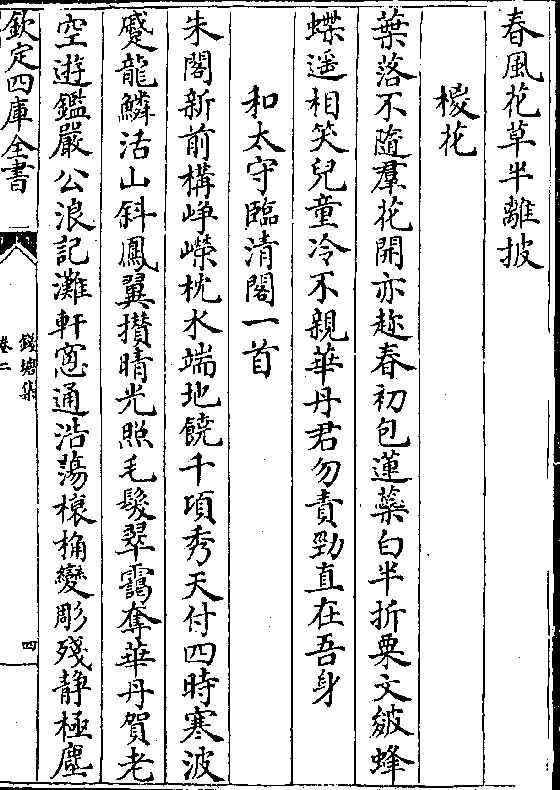 春風花草半離披
椶花
葉落不隨羣花開亦趂春初包蓮蘂白半折粟文皴蜂
蝶遥相笑兒童冷不親華丹君勿責勁直在吾身
和太守臨清閣一首
朱閣新前構峥嶸枕水端地饒千項秀天付四時寒波
蹙龍鱗活山斜鳳翼攅晴光照毛髮翠靄奪華丹賀老
空遊鑑嚴公浪記灘軒窻通浩蕩榱桷變彫殘静極塵
欽定四庫全書
錢塘集
卷二
四